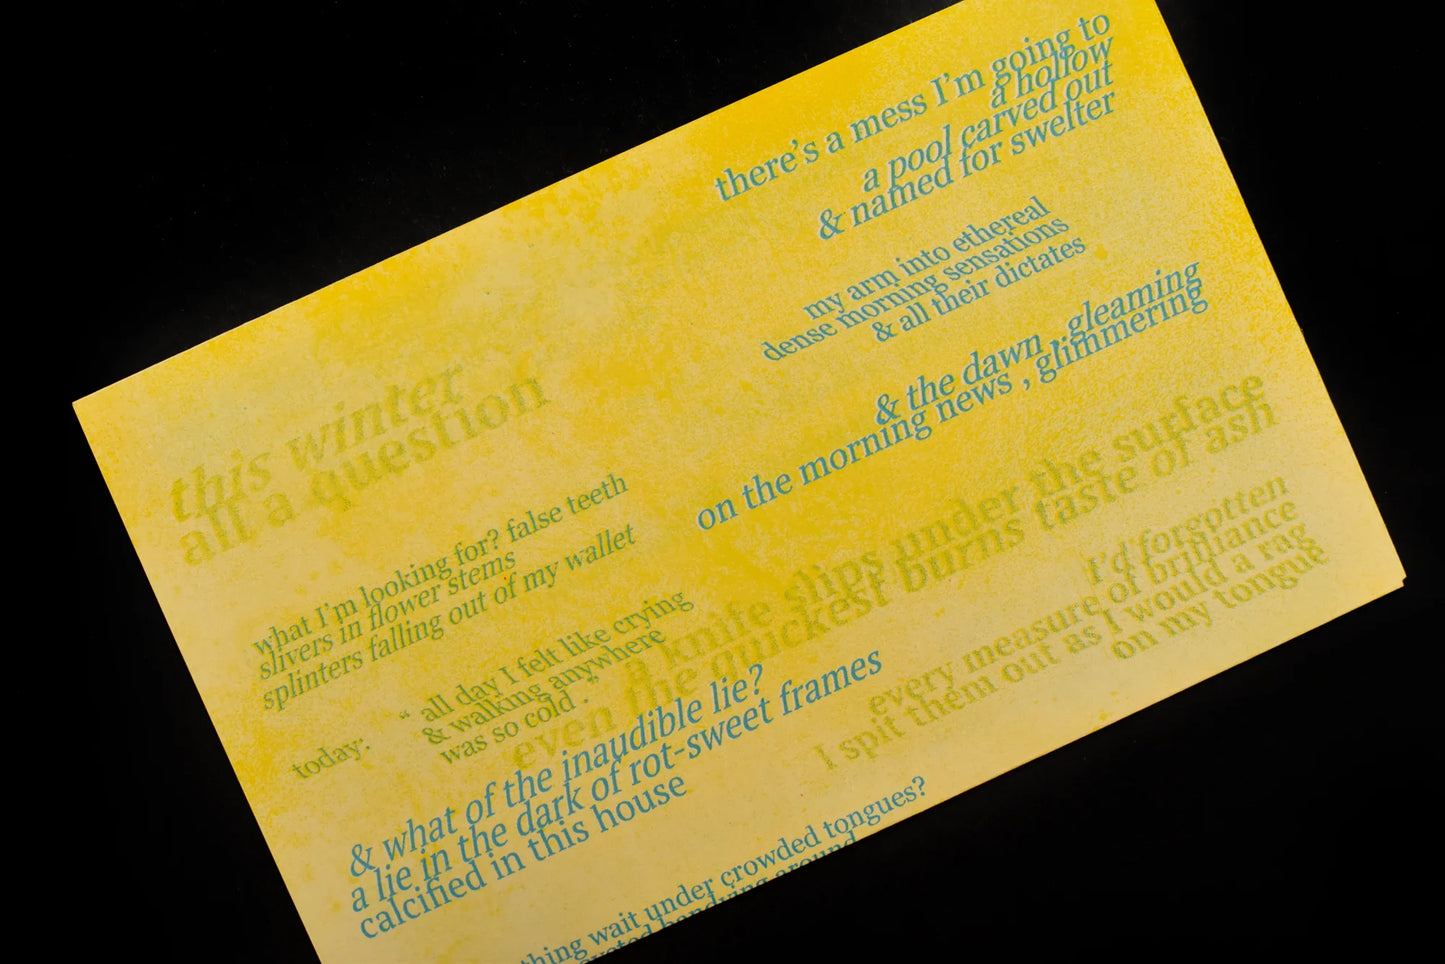 there's a mess I'm going to
a hollow
a pool carved out
& named for swelter
my arm into ethereal
dense morning sensations
& all their dictates
& the dawn , gleaming
on the morning news , glimmering
this winter
all a question
what I'm looking for? false teeth
slivers in flower stems
splinters falling out of my wallet
today:
“ all day I felt like crying
& walking anywhere
was so cold . ”
a knife slips under the surface
even the quickest burns taste of ash
I'd forgotten
every measure of brilliance
I spit them out as I would a rag
on my tongue
& what of the inaudible lie?
a lie in the dark of rot-sweet frames
calcified in this house
thing wait under crowded tongues?
around